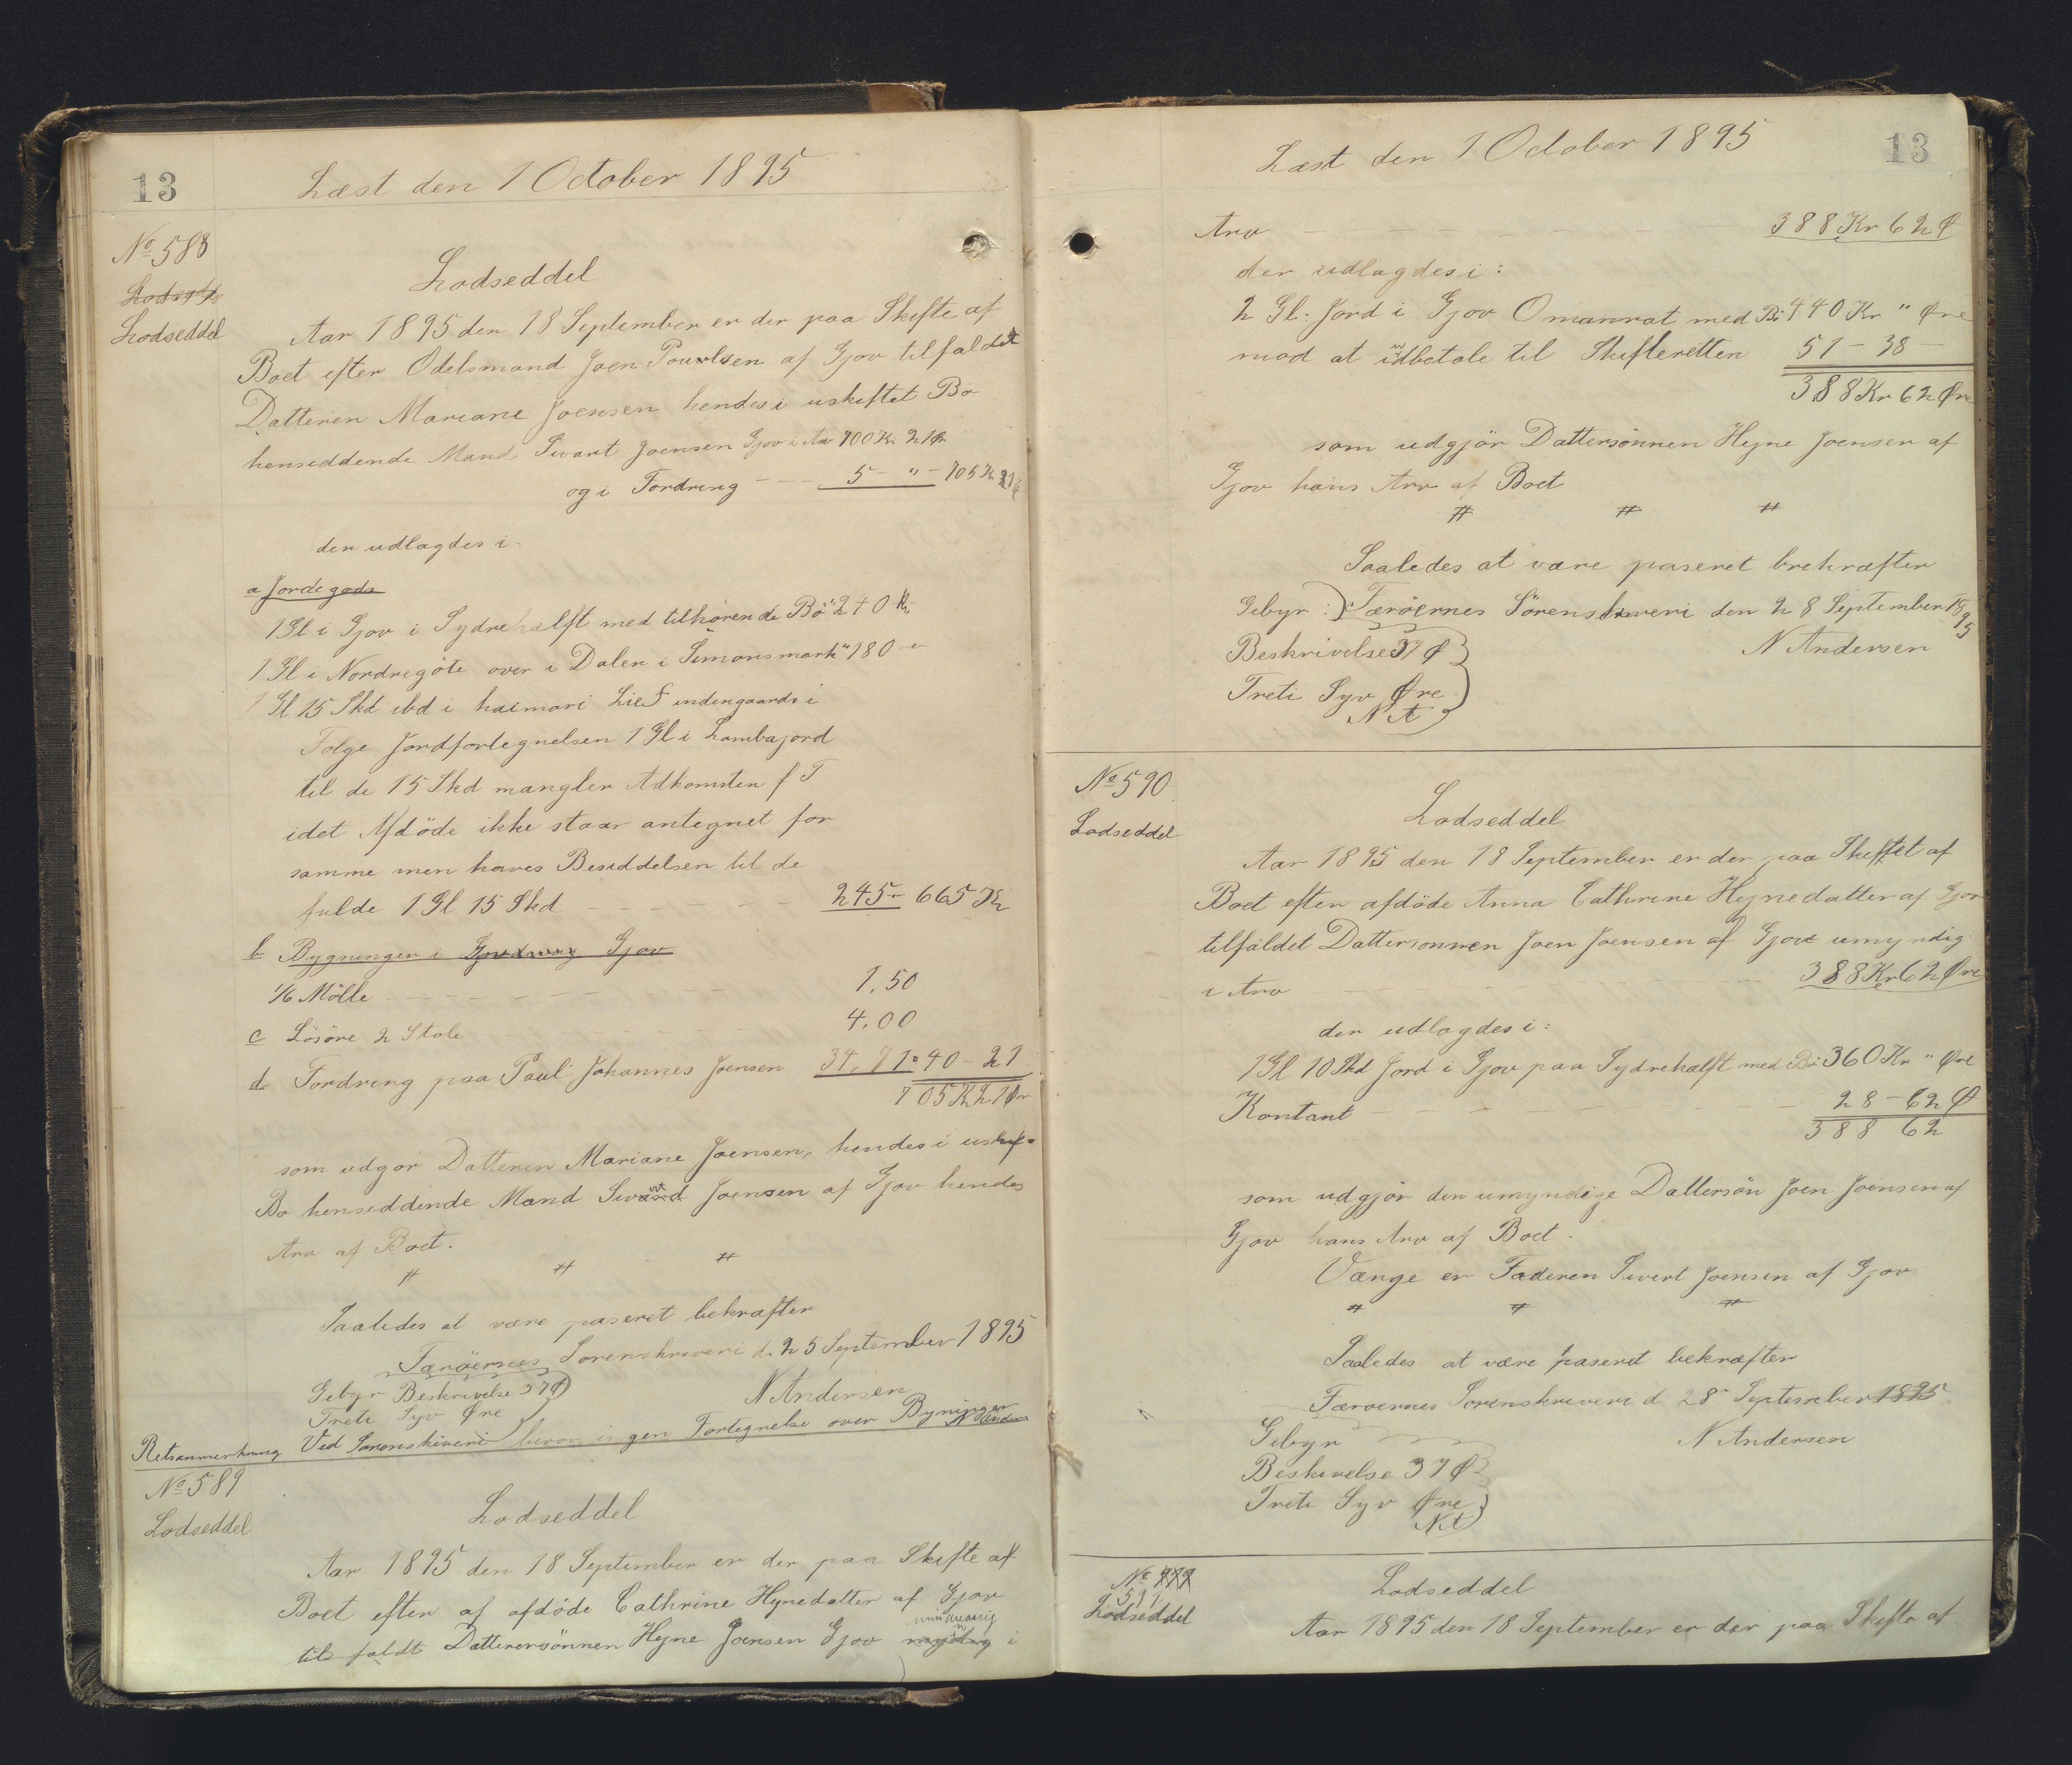 13
Læst den 1 October 1895
No 588
Lodseddel
Lodseddel
Aar 1895 den 18 September er der paa Skifte af
Boet efter Odelsmand Joen Poulsen af Gjov tilfaldet
Datteren Mariane Joensen hendes i uskiftet Bo
hensiddende Mand Sivart Joensen Gjov i Arv 700 Kr 21 Ør
og i Fordring 5 - " - 705 Kr 21 Ø
der udlagdes i:
a Jordegods
1 Gl i Gjov i Sydrehælft med tilhørende Bö " 240 Kr
1 Gl i Nordregöte over i Dalen i Simonsmark " 180 - "
1 Gl 15 Skd ibd i haimari Lief undengaards i
Følge Jordfortegnelsen 1 Gl i Lambajord
til de 15 Skd mangler Adkomsten f T
idet Afdöde ikke staar antegnet for
samme men haves Besiddelsen til de
fulde 1 Gl 15 Skd 245 - 665 Kr
b Bygningen i Gjov
1/6 Mölle 1.50
c Lösöre 2 Stole 4.00
d Fordring paa Paul Johannes Joensen 34.71 = 40 - 21
705 Kr 21 Ør
som udgör Datteren Mariane Joensen, hendes i uskif=
Bo hensiddende Mand Sivart Joensen af Gjov hendes
Arv af Boet.
# # #
Saaledes at være paseret bekræfter
Færöernes Sorenskriveri d. 25 September 1895
Gebyr Beskrivelse 37 Ø N Andersen
Treti Syv Øre
Retsanmerkning Ved Sorenskiveri gen Fortegnelse over Byninger N Anders
No 589
Lodseddel
Lodseddel
Aar 1895 den 18 September er der paa Skifte af
Boet efter af afdöde Cathrine Hejnedatter af Gjov
mindreaarig
til faldt Datterersönnen Hejne Joensen Gjov i
13
Læst den 1 October 1895
Arv 388 Kr 62 Ø
der udlagdes i:
2 Gl. Jord i Gjov Omanrat med Bö 440 Kr " Øre
mod at indbetale til Skifteretten 51 - 38 -
388 Kr 62 Øre
som udgjör Dattersönnen Hejne Joensen af
Gjov hans Arv af Boet
# # #
Saaledes at være paseret brekræfter
Gebyr: Færöernes Sörenskriveri den 28 September 1895
Beskrivelse 37 Ø N Andersen
Treti Syv Øre
N A
No 590
Lodseddel
Lodseddel
Aar 1895 den 18 September er der paa Skiftet af
Boet efter afdöde Anna Cathrine Hejnedatter af Gjov
tilfaldet Dattersonnen Joen Joensen af Gjov umyndig
i Arv 388 Kr 62 Øre
der udlagdes i:
1 Gl 10 Skd Jord i Gjov paa Sydrehalft med Bö 360 Kr " Øre
Kontant 28 - 62 Ø
388 62
som udgjör den umyndige Dattersön Joen Joensen af
Gjov hans Arv af Boet.
Værge er Faderen Sivert Joensen af Gjov
# # #
Saaledes at være paseret bekræfter
Færoernes Sorenskriveri d 28 September 1895
Gebyr N Andersen
Beskivelse 37 Ø
Treti Syv Øre
N A
No
591
Lodseddel
Lodseddel
Aar 1895 den 18 September er der paa Skifte af